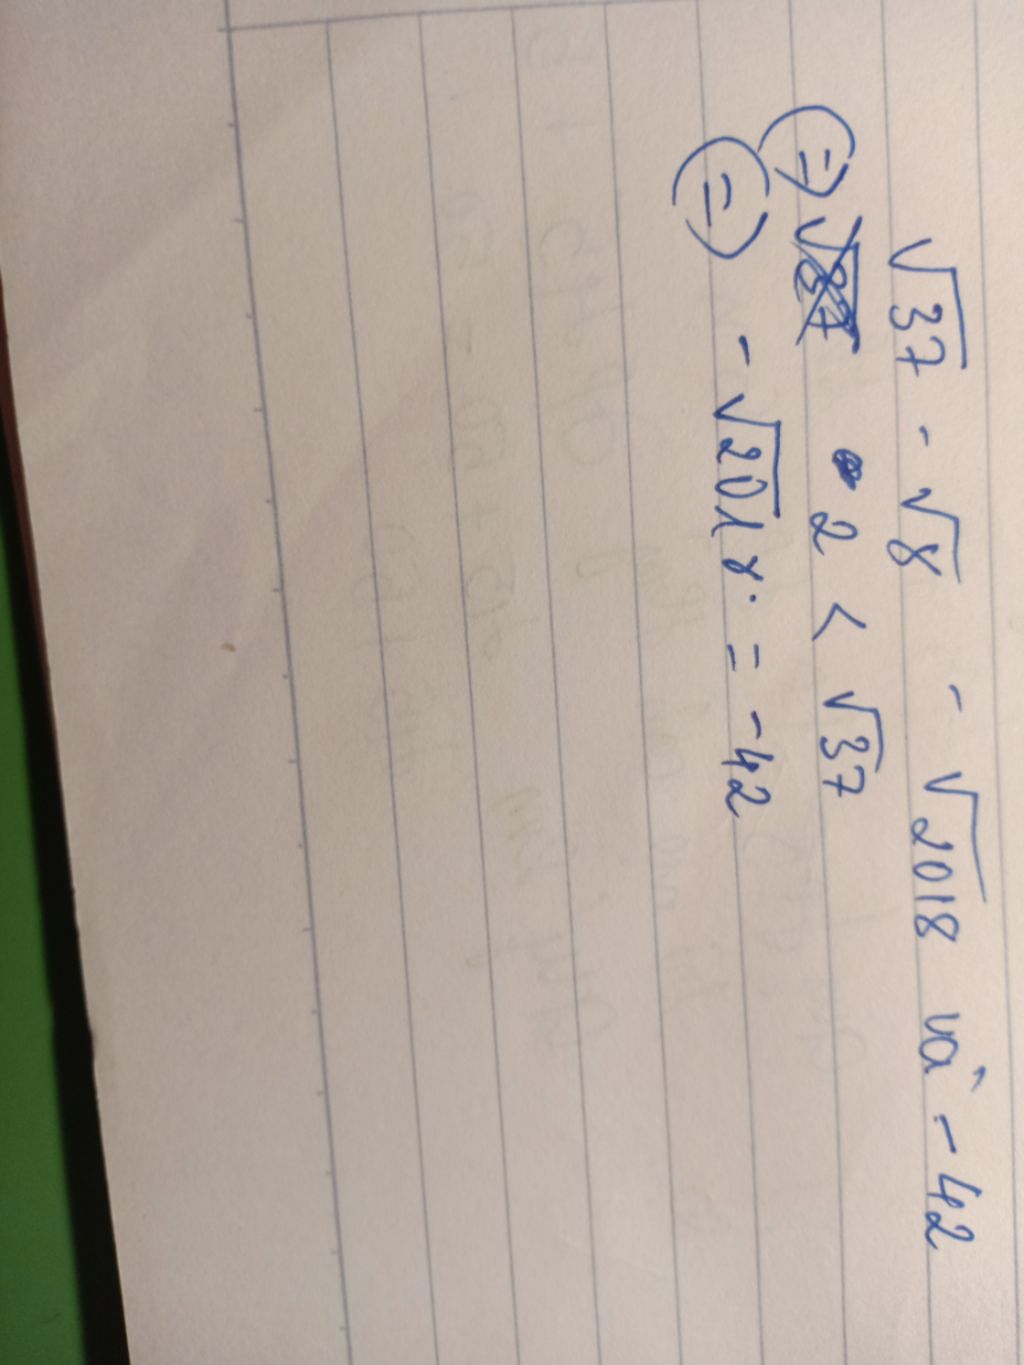 √37 - √8 - √2018 và -42
=) 2 < √37
=) - √2018 = -42